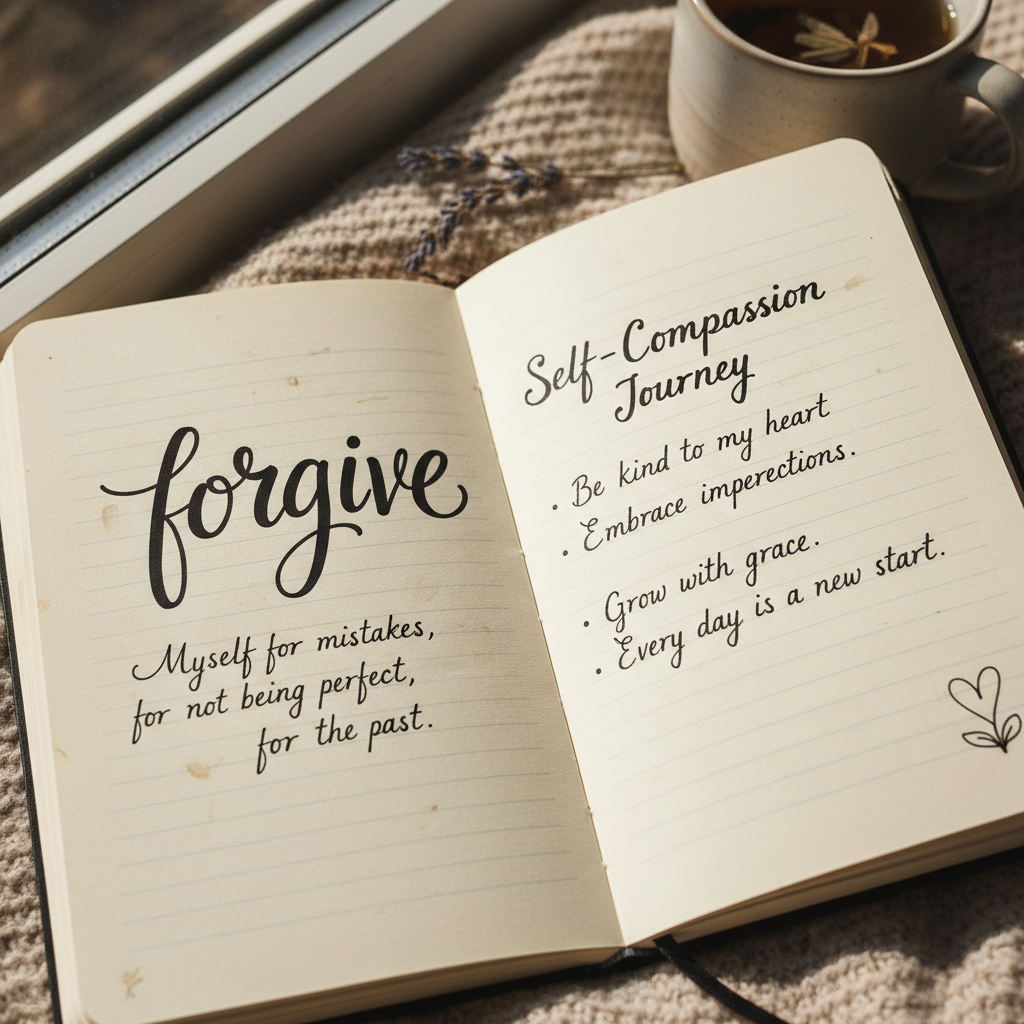 forgive
Myself for mistakes,
for not being perfect,
for the past.
Self-Compassion
Journey
· Be kind to my heart
· Embrace imperections.
· Grow with grace.
· Every day is a new start.